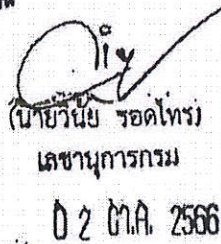 (นายวินัย รอดไทร)
เลขานุการกรม
0 2 ต.ค. 2566